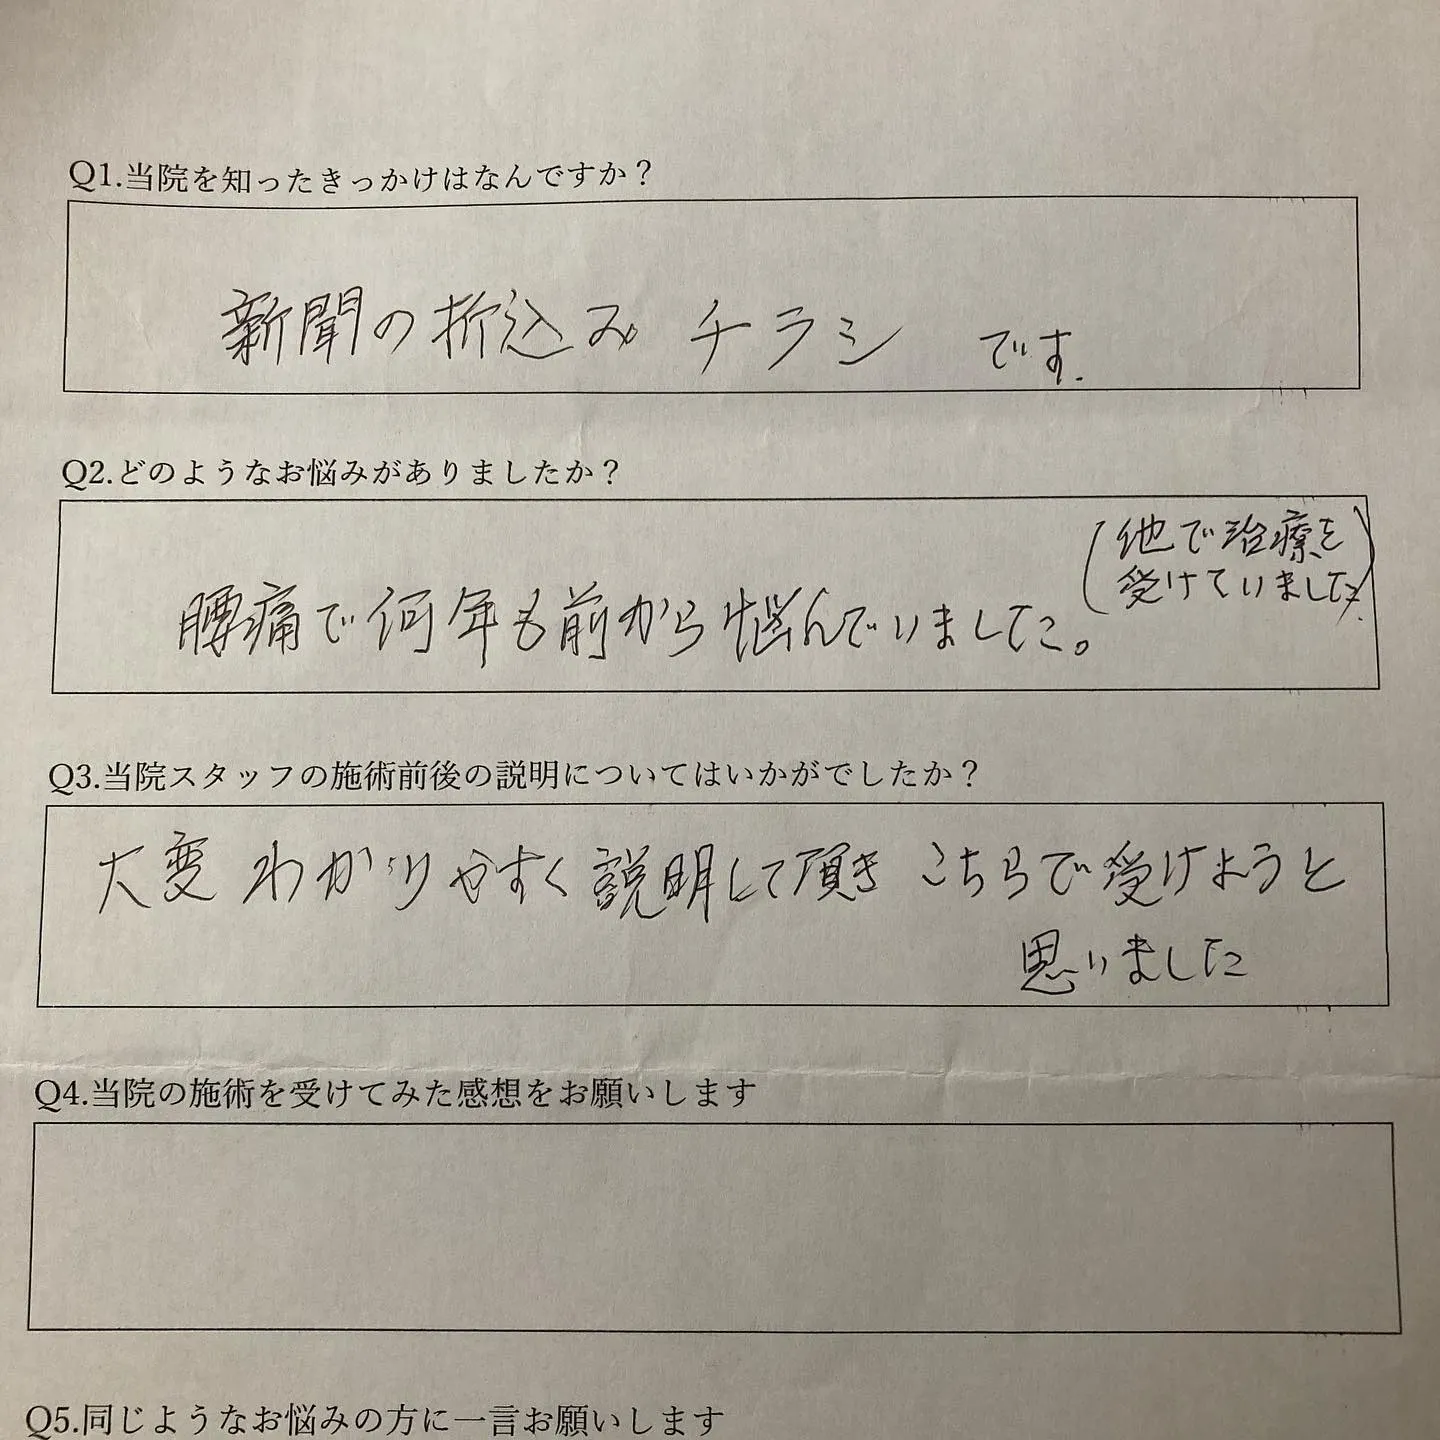 Q1.当院を知ったきっかけはなんですか？
新聞の折込み チラシ です.
Q2.どのようなお悩みがありましたか？
(他で治療を
受けていました)
腰痛で何年も前から悩んでいました。
Q3.当院スタッフの施術前後の説明についてはいかがでしたか？
大変 わかりやすく 説明して頂き こちらで受けようと
思いました
Q4.当院の施術を受けてみた感想をお願いします
Q5.同じようなお悩みの方に一言お願いします